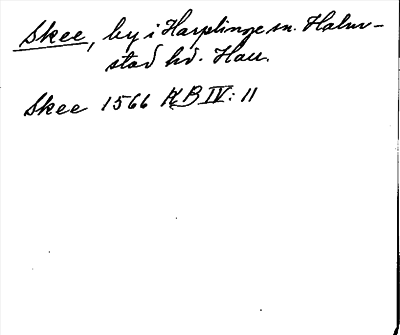 Skee, by i Harplinge sn. Halm-
stad hd. Hall.
Skee 1566 ÄB IV: 11